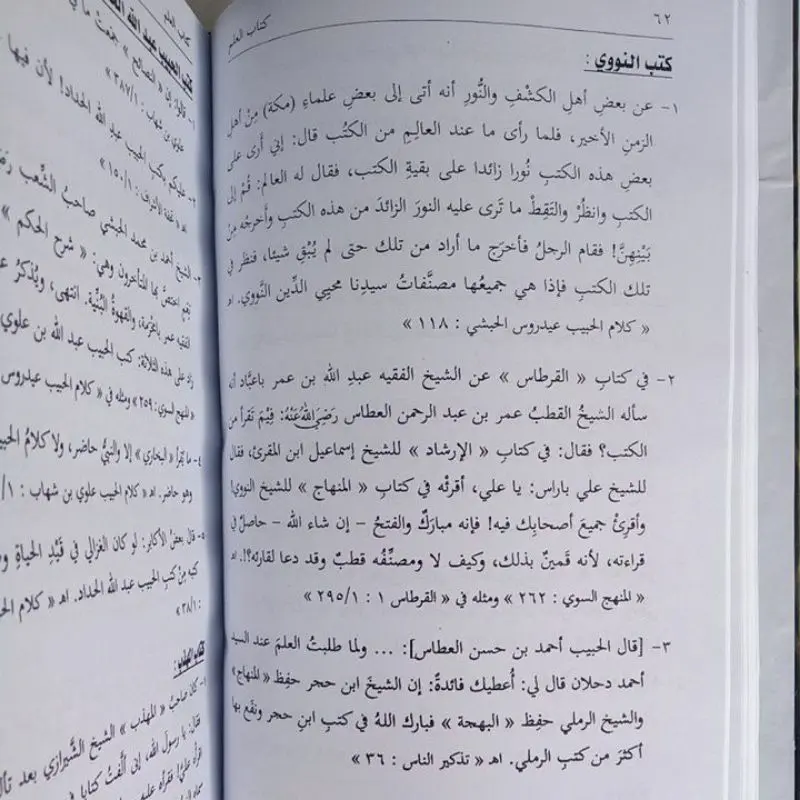 ٦٢
كتاب العلم
كتب النووي :
١- عن بعض أهلِ الكشْفِ والنُّورِ أنه أتى إلى بعضِ علماءِ (مكة) مِنْ أهلِ
الزمنِ الأخير، فلما رأى ما عند العالِمِ من الكتُب قال: إني أَرى على
بعضِ هذه الكتبِ نُورا زائدا على بقيةِ الكتب، فقال له العالم: قُمْ إلى
الكتبِ وانظُرْ والتَقِطْ ما تَرى عليه النورَ الزائدَ من هذه الكتبِ وأَخرجْه مِنْ
بَيْنِهِنَّ! فقام الرجلُ فأخرَج ما أراد من تلك حتى لم يُبْقِ شيئا، فنظر في
تلك الكتبِ فإذا هي جميعُها مصنَّفاتُ سيدِنا محيي الدِّين النَّووي. اهـ
« كلام الحبيب عيدروس الحبشي : ١١٨ »
٢- في كتابِ « القرطاس » عن الشيخ الفقيه عبدِ الله بن عمر باعبَّاد أنه
سأله الشيخُ القطبُ عمر بن عبد الرحمن العطاس رَضِيَ اللهُ عَنْهُ: فِيْمَ تَقرأُ من
الكتب؟ فقال: في كتابِ « الإرشاد » للشيخ إسماعيل ابن المقرئ، فقال
للشيخ علي باراس: يا علي، أقرئْه في كتابِ « المنهاج » للشيخ النووي!
وأقرِئْ جميعَ أصحابِك فيه! فإنه مباركٌ والفتحُ - إن شاء الله - حاصلٌ في
قراءته، لأنه قَمينٌ بذلك، وكيف لا ومصنِّفُه قطبٌ وقد دعا لقارئه؟!. اهـ
« المنهج السوي : ٢٦٢ » ومثله في « القرطاس ١ : ٢٩٥/١ »
٣- [قال الحبيب أحمد بن حسن العطاس]: ... ولما طلبتُ العلمَ عند السيد
أحمد دحلان قال لي: أُعطيك فائدةً: إن الشيخَ ابن حجر حفِظ « المنهاج»
والشيخ الرملي حفِظ « البهجة » فبارك اللهُ في كتبِ ابنِ حجر ونفَع بها
أكثرَ من كتبِ الرملي. اهـ « تذكير الناس : ٣٦ »
كتاب العلم
كتب الحبيب عبد الله
١- قالوا: إن « النصائح » جمَعتْ ما
علوي بن شهاب : ٣٨٧/١ »
٢- عليكم بكتبِ الحبيب عبد الله الحداد! لأن فيها
: ١٥٠/١ »
٣- الشيخ أحمد بن محمد الحبشي صاحبُ الشِّعب
المتأخرون وهي: « شرح الحكم »
والقهوةُ البُنِّية. انتهى، ويُذكرُ
على هذه الثلاثة: كتب الحبيب عبد الله بن علوي
المنهج السوي: ٢٥٩» ومثله في « كلام الحبيب عيدروس
٤- ما يُقرأ « البخاري » إلا والنبيُّ حاضر، ولا كلامُ
وهو حاضر. اهـ « كلام الحبيب علوي بن شهاب : ١/
٥- قال بعضُ الأكابر: لو كان الغزالي في قَيْدِ الحياةِ
كتبه مِنْ كتبِ الحبيب عبد الله الحداد. اهـ « كلام
: ٣٨/١ »
١- كان صاحبُ « المهذب » الشيخ الشِّيرازي بعد
فقال: يا رسولَ الله، إني ألَّفتُ كتابا